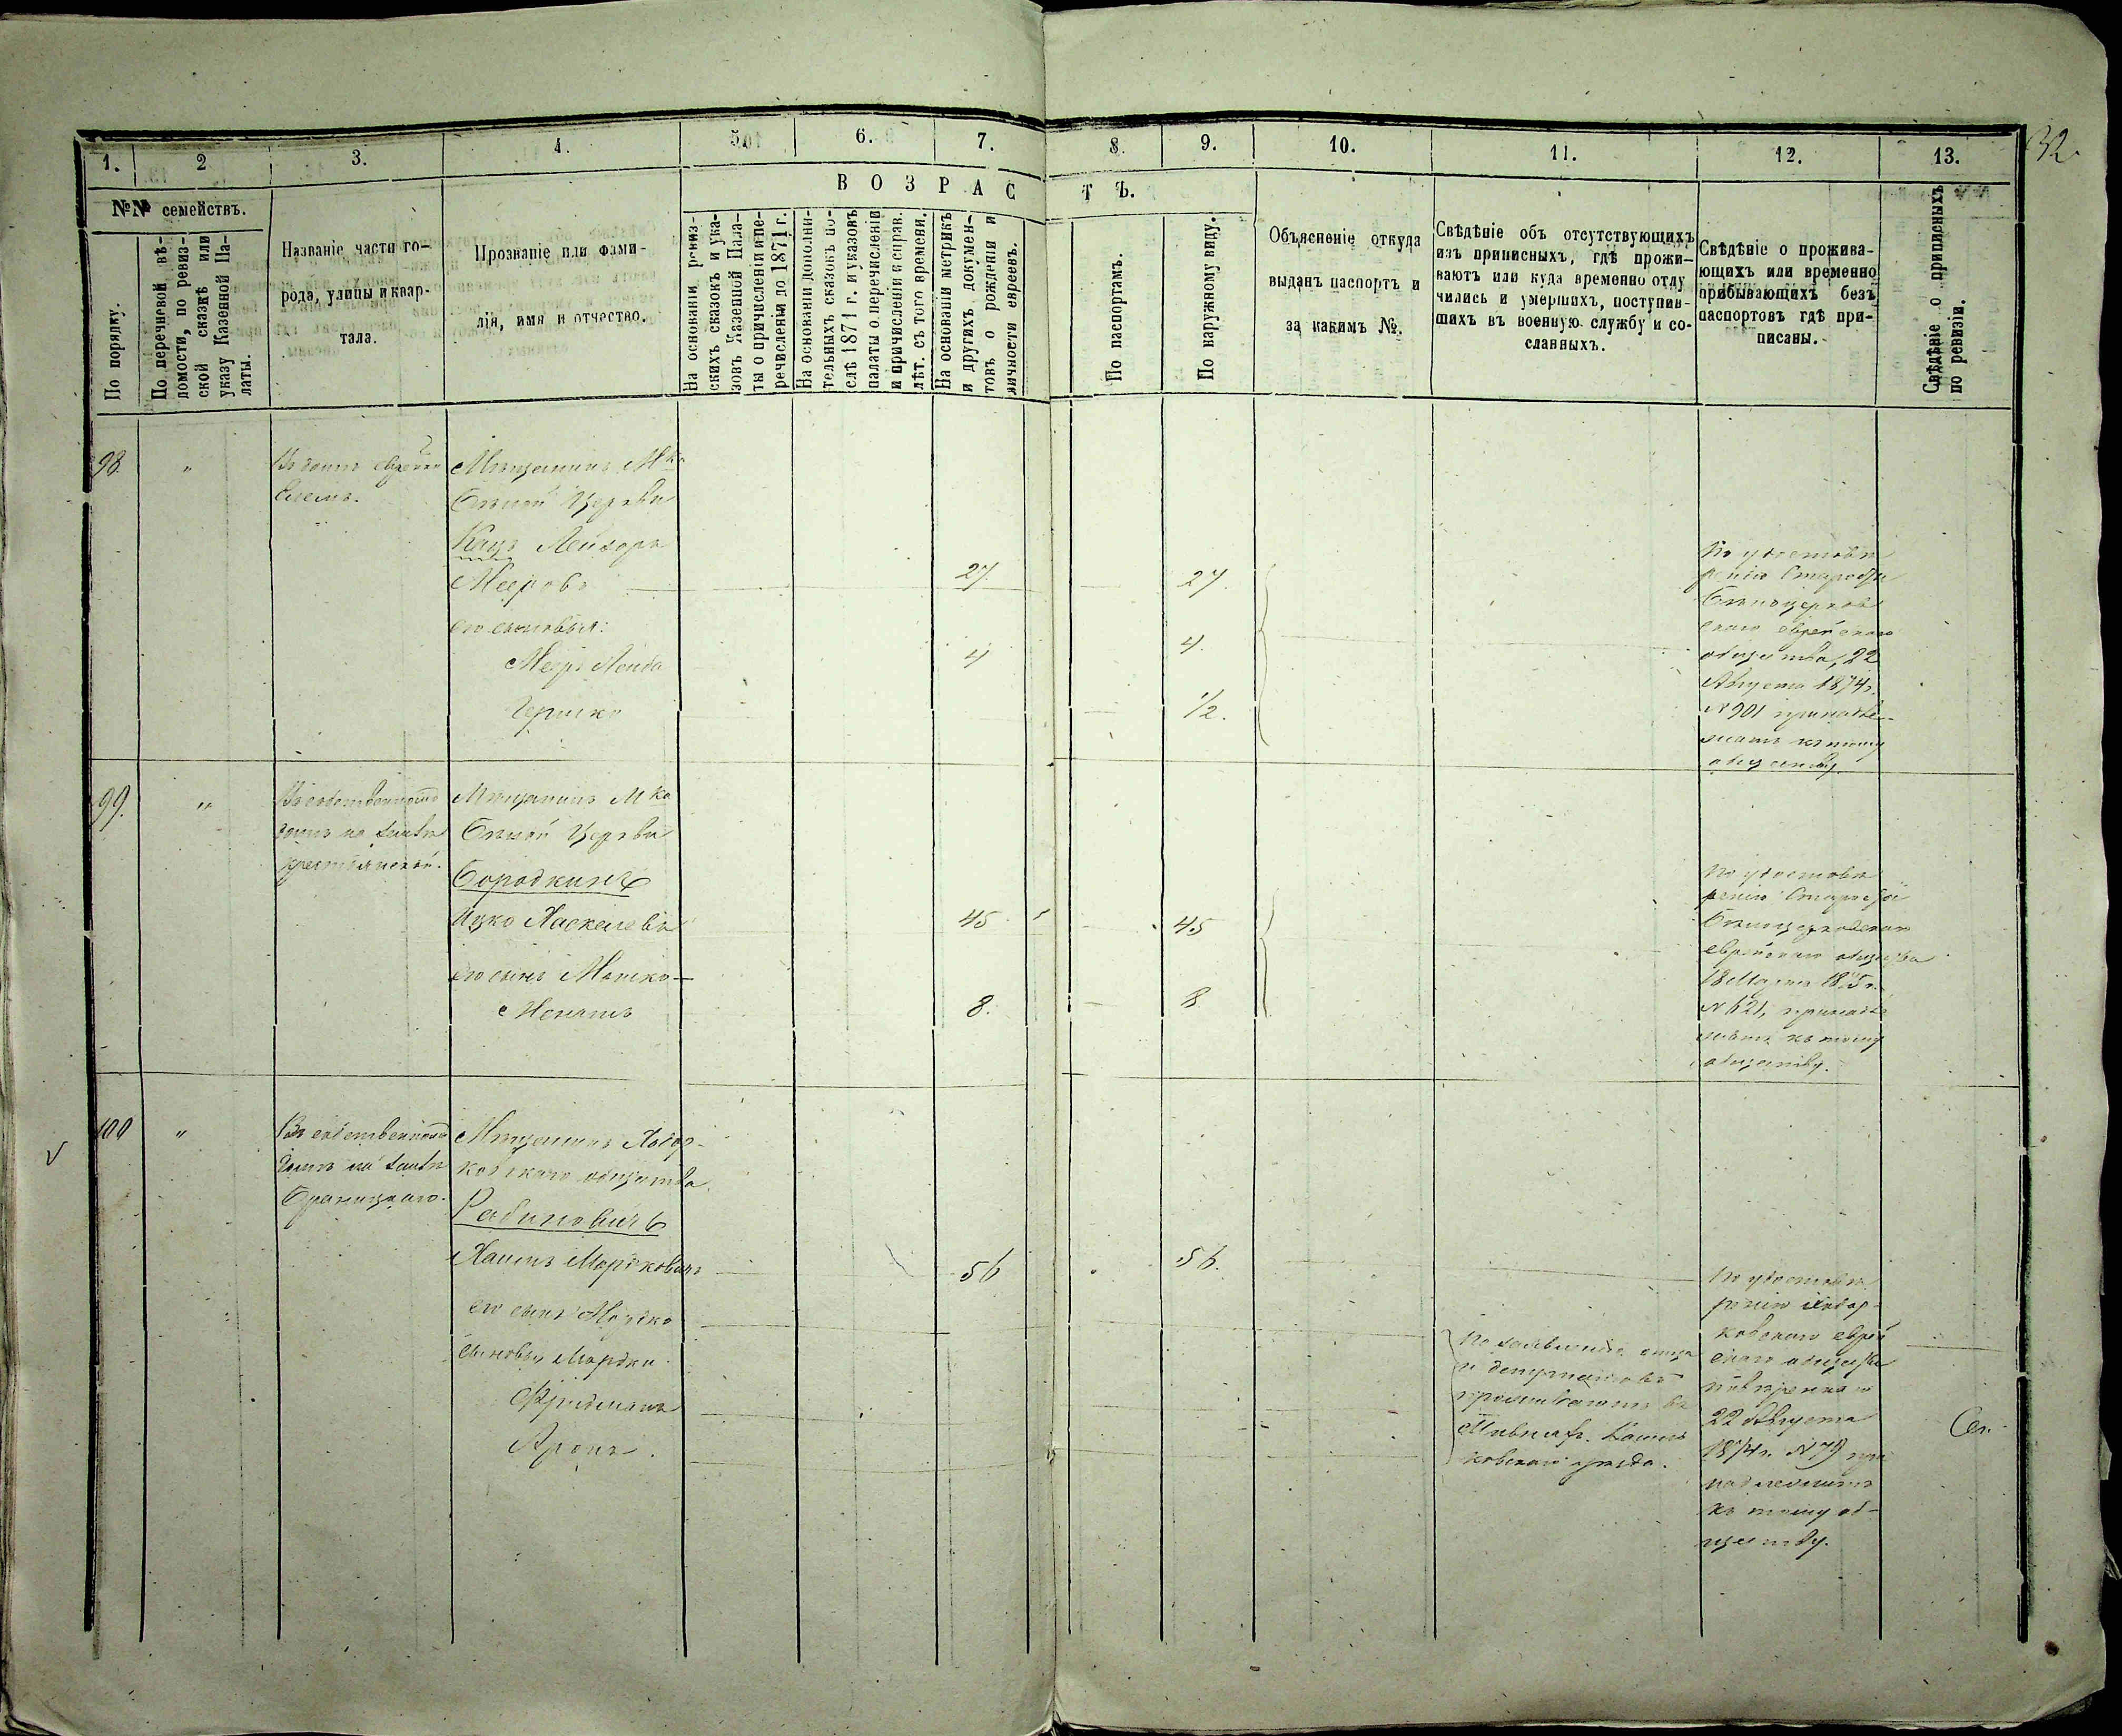 32
1.
2
3.
4.
5.
6.
7.
8.
9.
10.
11.
12.
13.
№№ семействъ.
По порядку.
По перечневой вѣ-
домости, по ревиз-
ской сказкѣ или
указу Казенной Па-
латы.
Названіе части го-
рода, улицы и квар-
тала.
Прозваніе или фами-
лія, имя и отчество.
ВОЗРАСТЪ.
На основаніи ревиз-
скихъ сказокъ и ука-
зовъ Казенной Пала-
ты о причисленіи и пе-
речисленіи до 1871 г.
На основаніи дополни-
тельныхъ сказокъ по-
слѣ 1871 г. и указовъ
палаты о перечисленіи
и причисленіи и справ.
лѣт. съ того времени.
На основаніи метрикъ
и другихъ докумен-
товъ о рожденіи и
личности евреевъ.
По паспортамъ.
По наружному виду.
Объясненіе откуда
выданъ паспортъ и
за какимъ №.
Свѣдѣніе объ отсутствующихъ
изъ приписныхъ, гдѣ прожи-
ваютъ или куда временно отлу
чились и умершихъ, поступив-
шихъ въ военную службу и со-
сланныхъ.
Свѣдѣніе о прожива-
ющихъ или временно
прибывающихъ безъ
паспортовъ гдѣ при-
писаны.
Свѣдѣніе о приписныхъ
по ревизіи.
98
"
Въ домѣ
Мѣщанинъ М ка
Бѣлой Церкви
Кацъ Лейзоръ
Мееровъ
27
27.
его сыновья:
Мееръ Лейба
4
4.
Гершко
1/2.
По удостовѣ
ренію Старосты
Бѣлоцерков
скаго еврейскаго
общества, 22
Августа 1874 г.
№ 901 принадле-
житъ къ тому
обществу.
99.
"
Въ собственномъ
домѣ на землѣ
крестьянской.
Мѣщанинъ М ка
Бѣлой Церкви
Бородкинъ
Ицко Хаскелевъ
45
45
его сынъ Мошко-
8.
8.
По удостовѣ
ренію Старосты
Бѣлоцерковскаго
еврейскаго общества
18 Марта 1875 г.
№ 621, принадле
житъ къ тому
обществу.
100
"
Въ собственномъ
домѣ на землѣ
Браницкаго.
Мѣщанинъ Ходор-
ковскаго общества
Рабиновичъ
Хаимъ Мордковичъ
56
56.
его сынъ Мордко
сыновья Мордки
Фридманъ
Аронъ.
По заявленію отца
и депутатовъ
проживаютъ въ
ковскаго уѣзда.
По удостовѣ
ренію Ходор-
ковскаго еврей
скаго общества
22 Августа
1874 г. № 79 при
надлежитъ
къ тому об-
ществу.